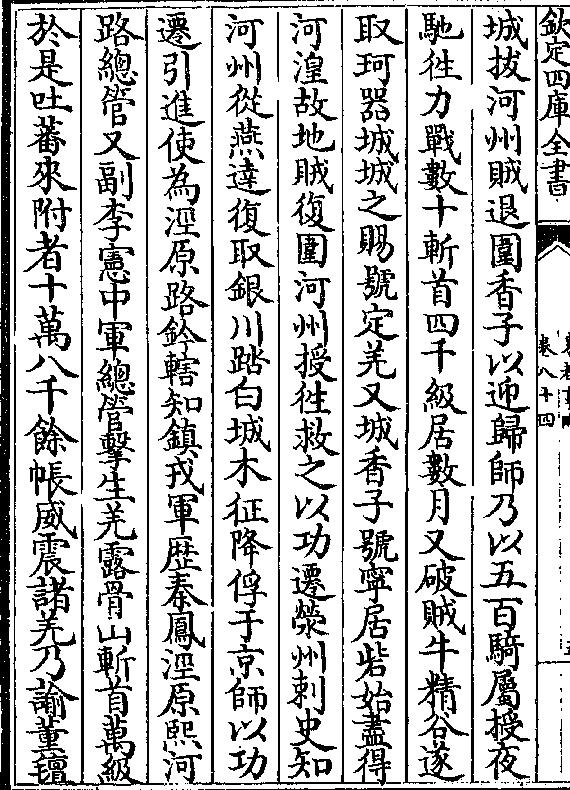 欽定四庫全書
卷八十四
城拔河州賊退圍香子以迎歸師乃以五百騎屬授夜
馳徃力戰數十斬首四千級居數月又破賊牛精谷遂
取珂器城城之賜號定羌又城香子號寧居砦始盡得
河湟故地賊復圍河州授徃救之以功遷滎州刺史知
河州從燕達復取銀川踏白城木征降俘于京師以功
遷引進使為涇原路鈐轄知鎮戎軍歴秦鳳涇原熙河
路總管又副李憲中軍總管擊生羌露骨山斬首萬級
於是吐蕃來附者十萬八千餘帳威震諸羌乃諭董氊